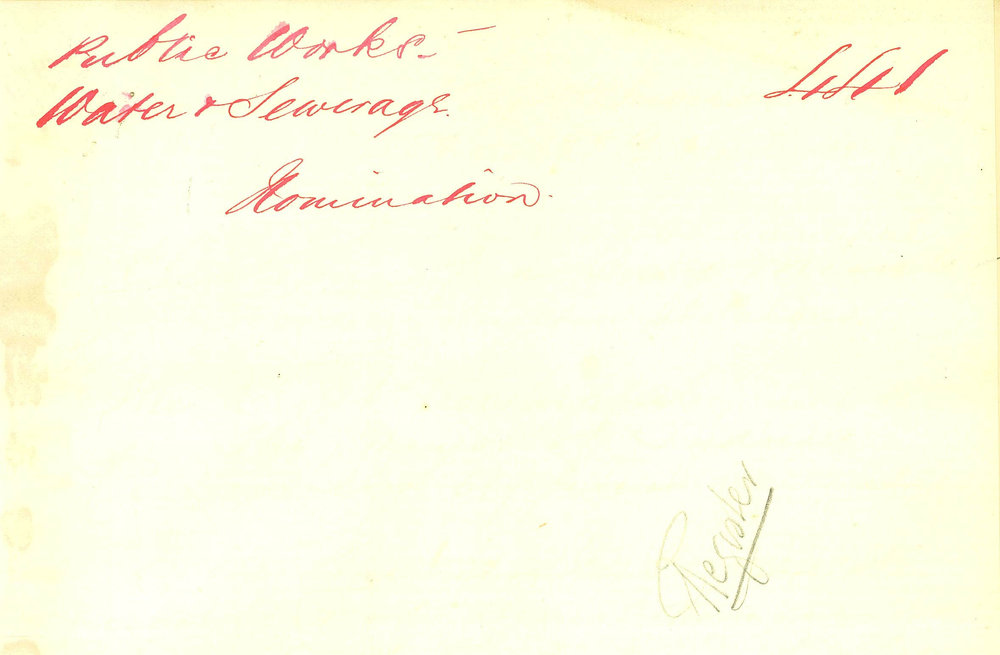 Public Works. -
441
Water & Sewerage.
Nomination.
Register